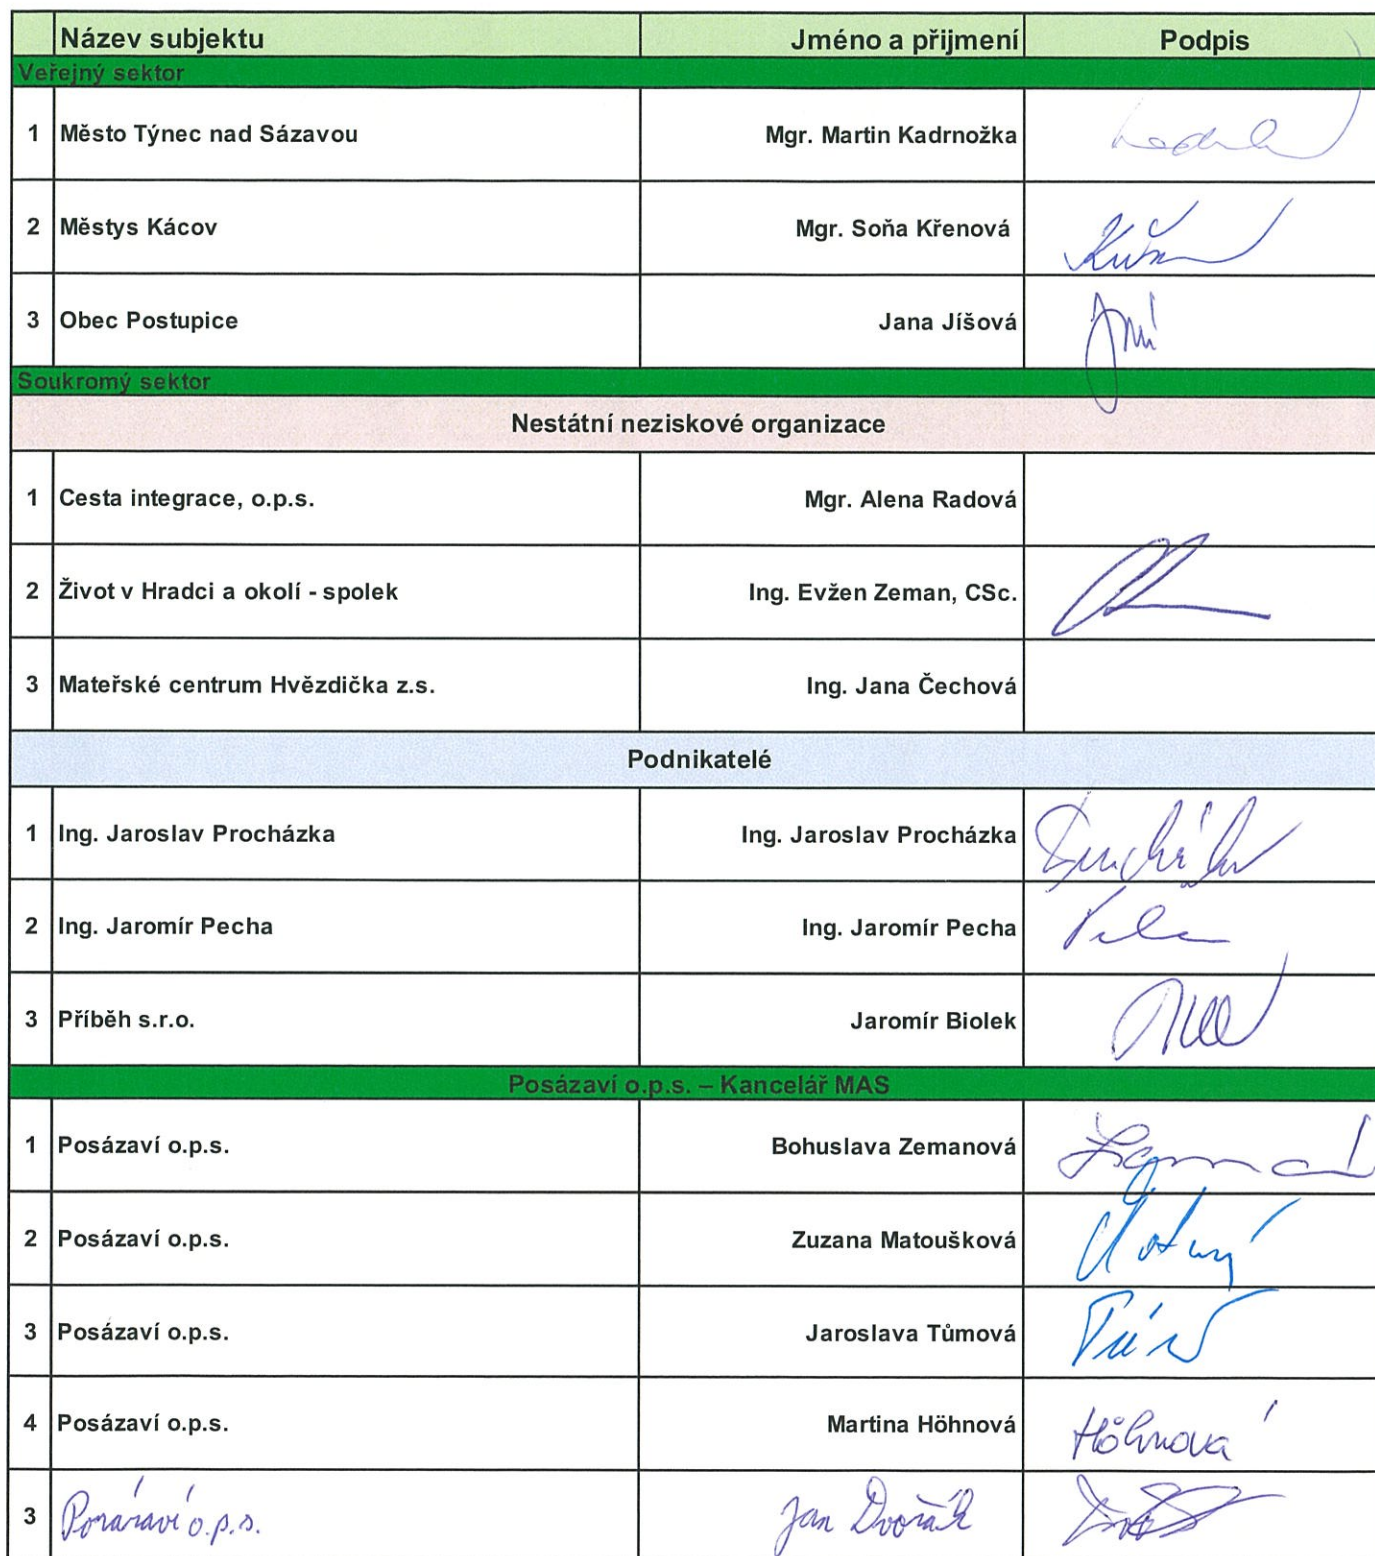 Název subjektu Jméno a přijmení Podpis
Veřejný sektor
1 Město Týnec nad Sázavou Mgr. Martin Kadrnožka
2 Městys Kácov Mgr. Soňa Křenová
3 Obec Postupice Jana Jíšová
Soukromý sektor
Nestátní neziskové organizace
1 Cesta integrace, o.p.s. Mgr. Alena Radová
2 Život v Hradci a okolí - spolek Ing. Evžen Zeman, CSc.
3 Mateřské centrum Hvězdička z.s. Ing. Jana Čechová
Podnikatelé
1 Ing. Jaroslav Procházka Ing. Jaroslav Procházka
2 Ing. Jaromír Pecha Ing. Jaromír Pecha
3 Příběh s.r.o. Jaromír Biolek
Posázaví o.p.s. – Kancelář MAS
1 Posázaví o.p.s. Bohuslava Zemanová
2 Posázaví o.p.s. Zuzana Matoušková
3 Posázaví o.p.s. Jaroslava Tůmová
4 Posázaví o.p.s. Martina Höhnová Höhnová
3 Posázaví o.p.s. Jan Dvořák